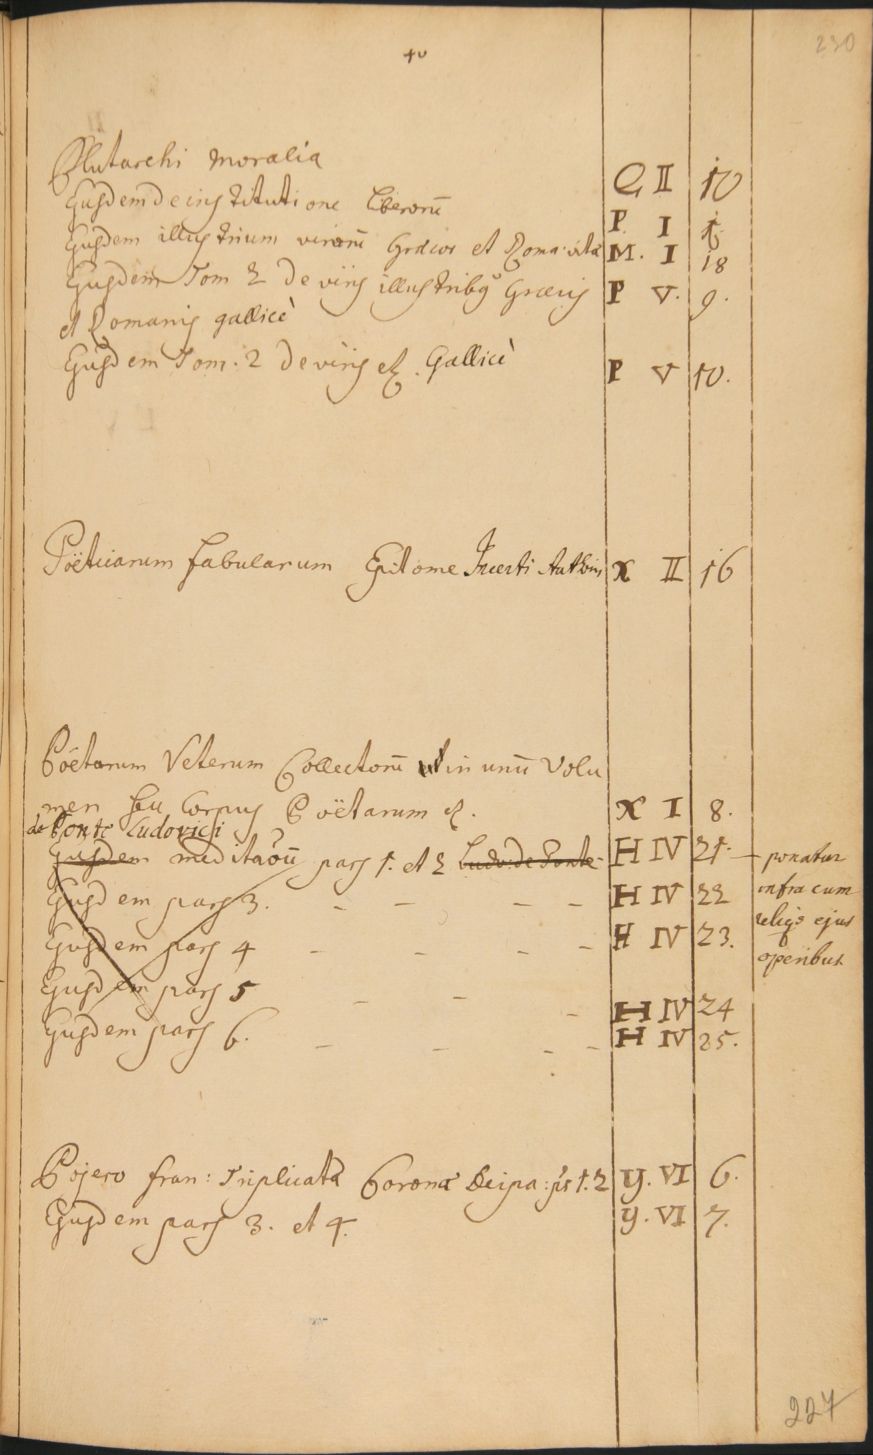 230
Plutarchi Moralia Q II 10
Ejusdem de institutione liberorū P. I
Ejusdem illustrium virorū Græcor et Roma: vitæ M. I 18
Ejusdem Tom 2 De viris illustribq Græcis P V. 9.
et Romanis gallicè
Ejusdem Tom. 2 De viris et. Gallicè P V 10.
Poëticarum fabularum Epitome Incerti Authoris X II 16
Poëtarum Veterum Collectorū in unū Volu
men seu Corpus Poëtarum et. X I 8.
de Ponte Ludovici
Ejusdem meditaōū pars 1. et 2 Ludo: de Ponte H IV 21. — ponatur
Ejusdem pars 3. – – – – H IV 22 infra cum
Ejusdem pars 4 – – – – H IV 23. reliqs ejus
operibus
Ejusdem pars 5 – – – H IV 24
Ejusdem pars 6. – – – – H IV 25.
Pojero fran: Triplicata Corona Deipa: prs 1. 2 Y. VI 6.
Ejusdem pars 3. et 4. Y. VI 7.
227